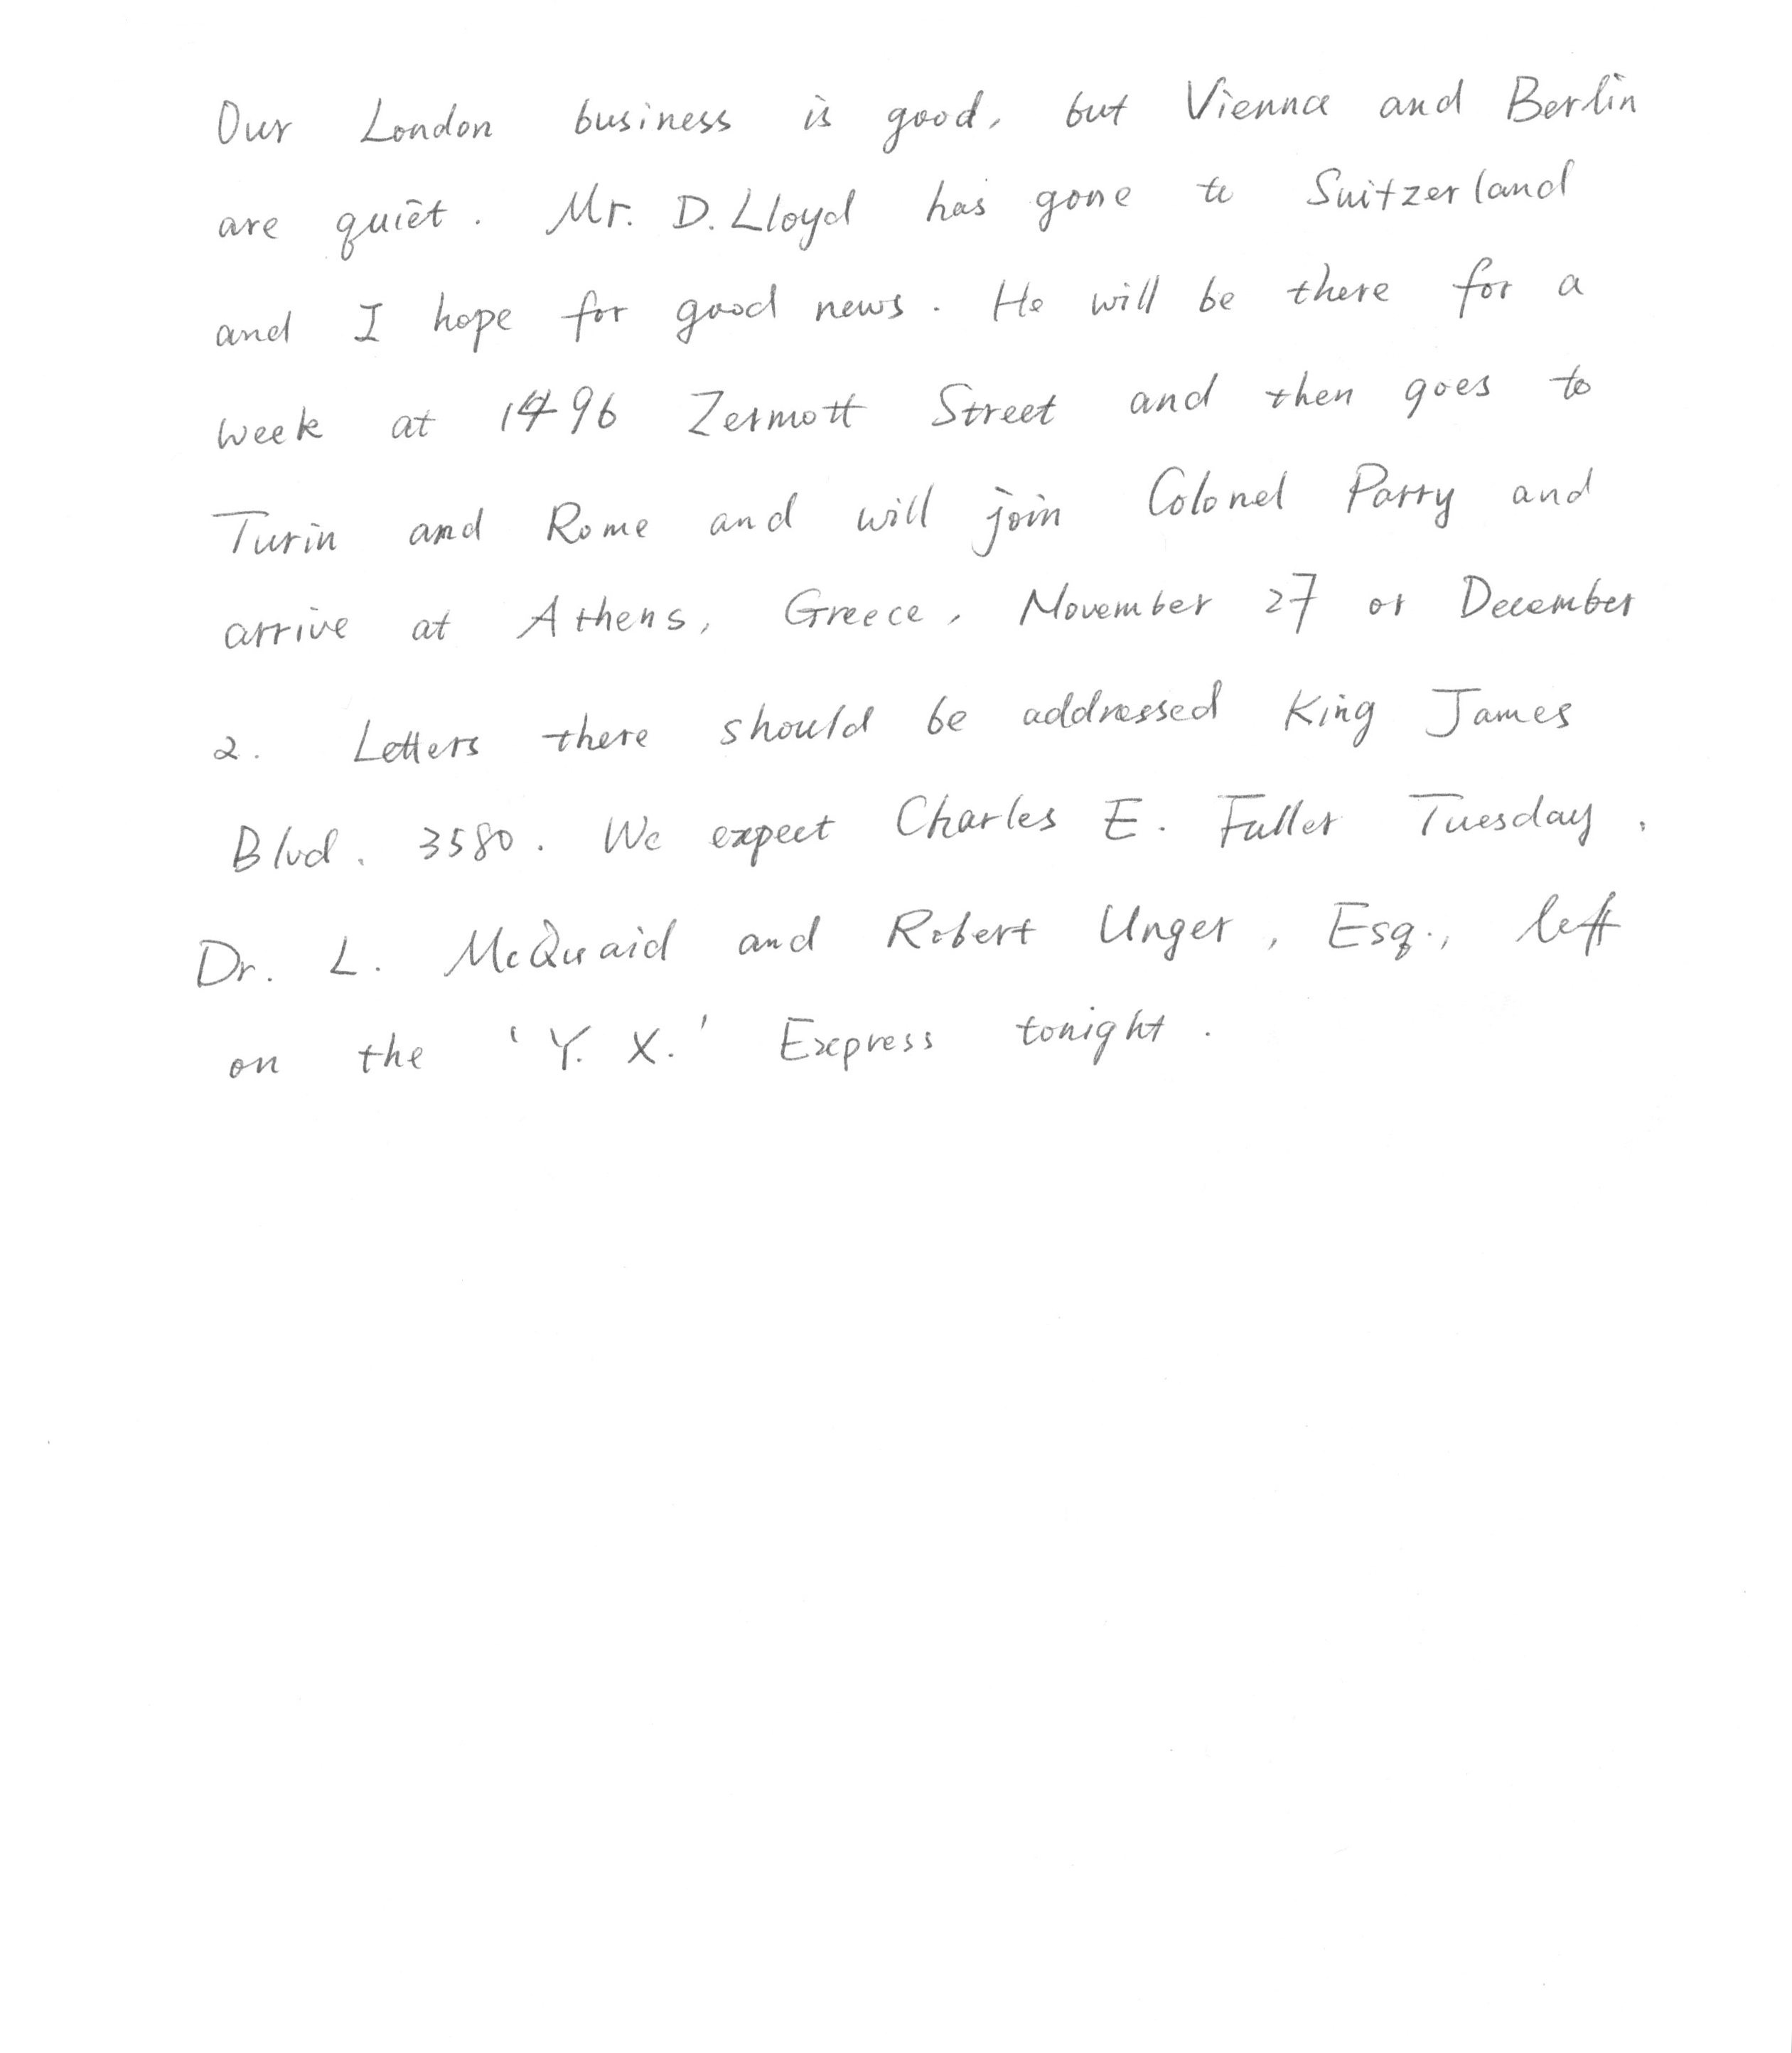 Our London business is good, but Vienna and Berlin
are quiet. Mr. D. Lloyd has gone to Switzerland
and I hope for good news. He will be there for a
week at 1496 Zermott Street and then goes to
Turin and Rome and will join Colonel Parry and
arrive at Athens, Greece, November 27 or December
2. Letters there should be addressed King James
Blvd. 3580. We expect Charles E. Fuller Tuesday.
Dr. L. McQuaid and Robert Unger, Esq., left
on the 'Y. X.' Express tonight.